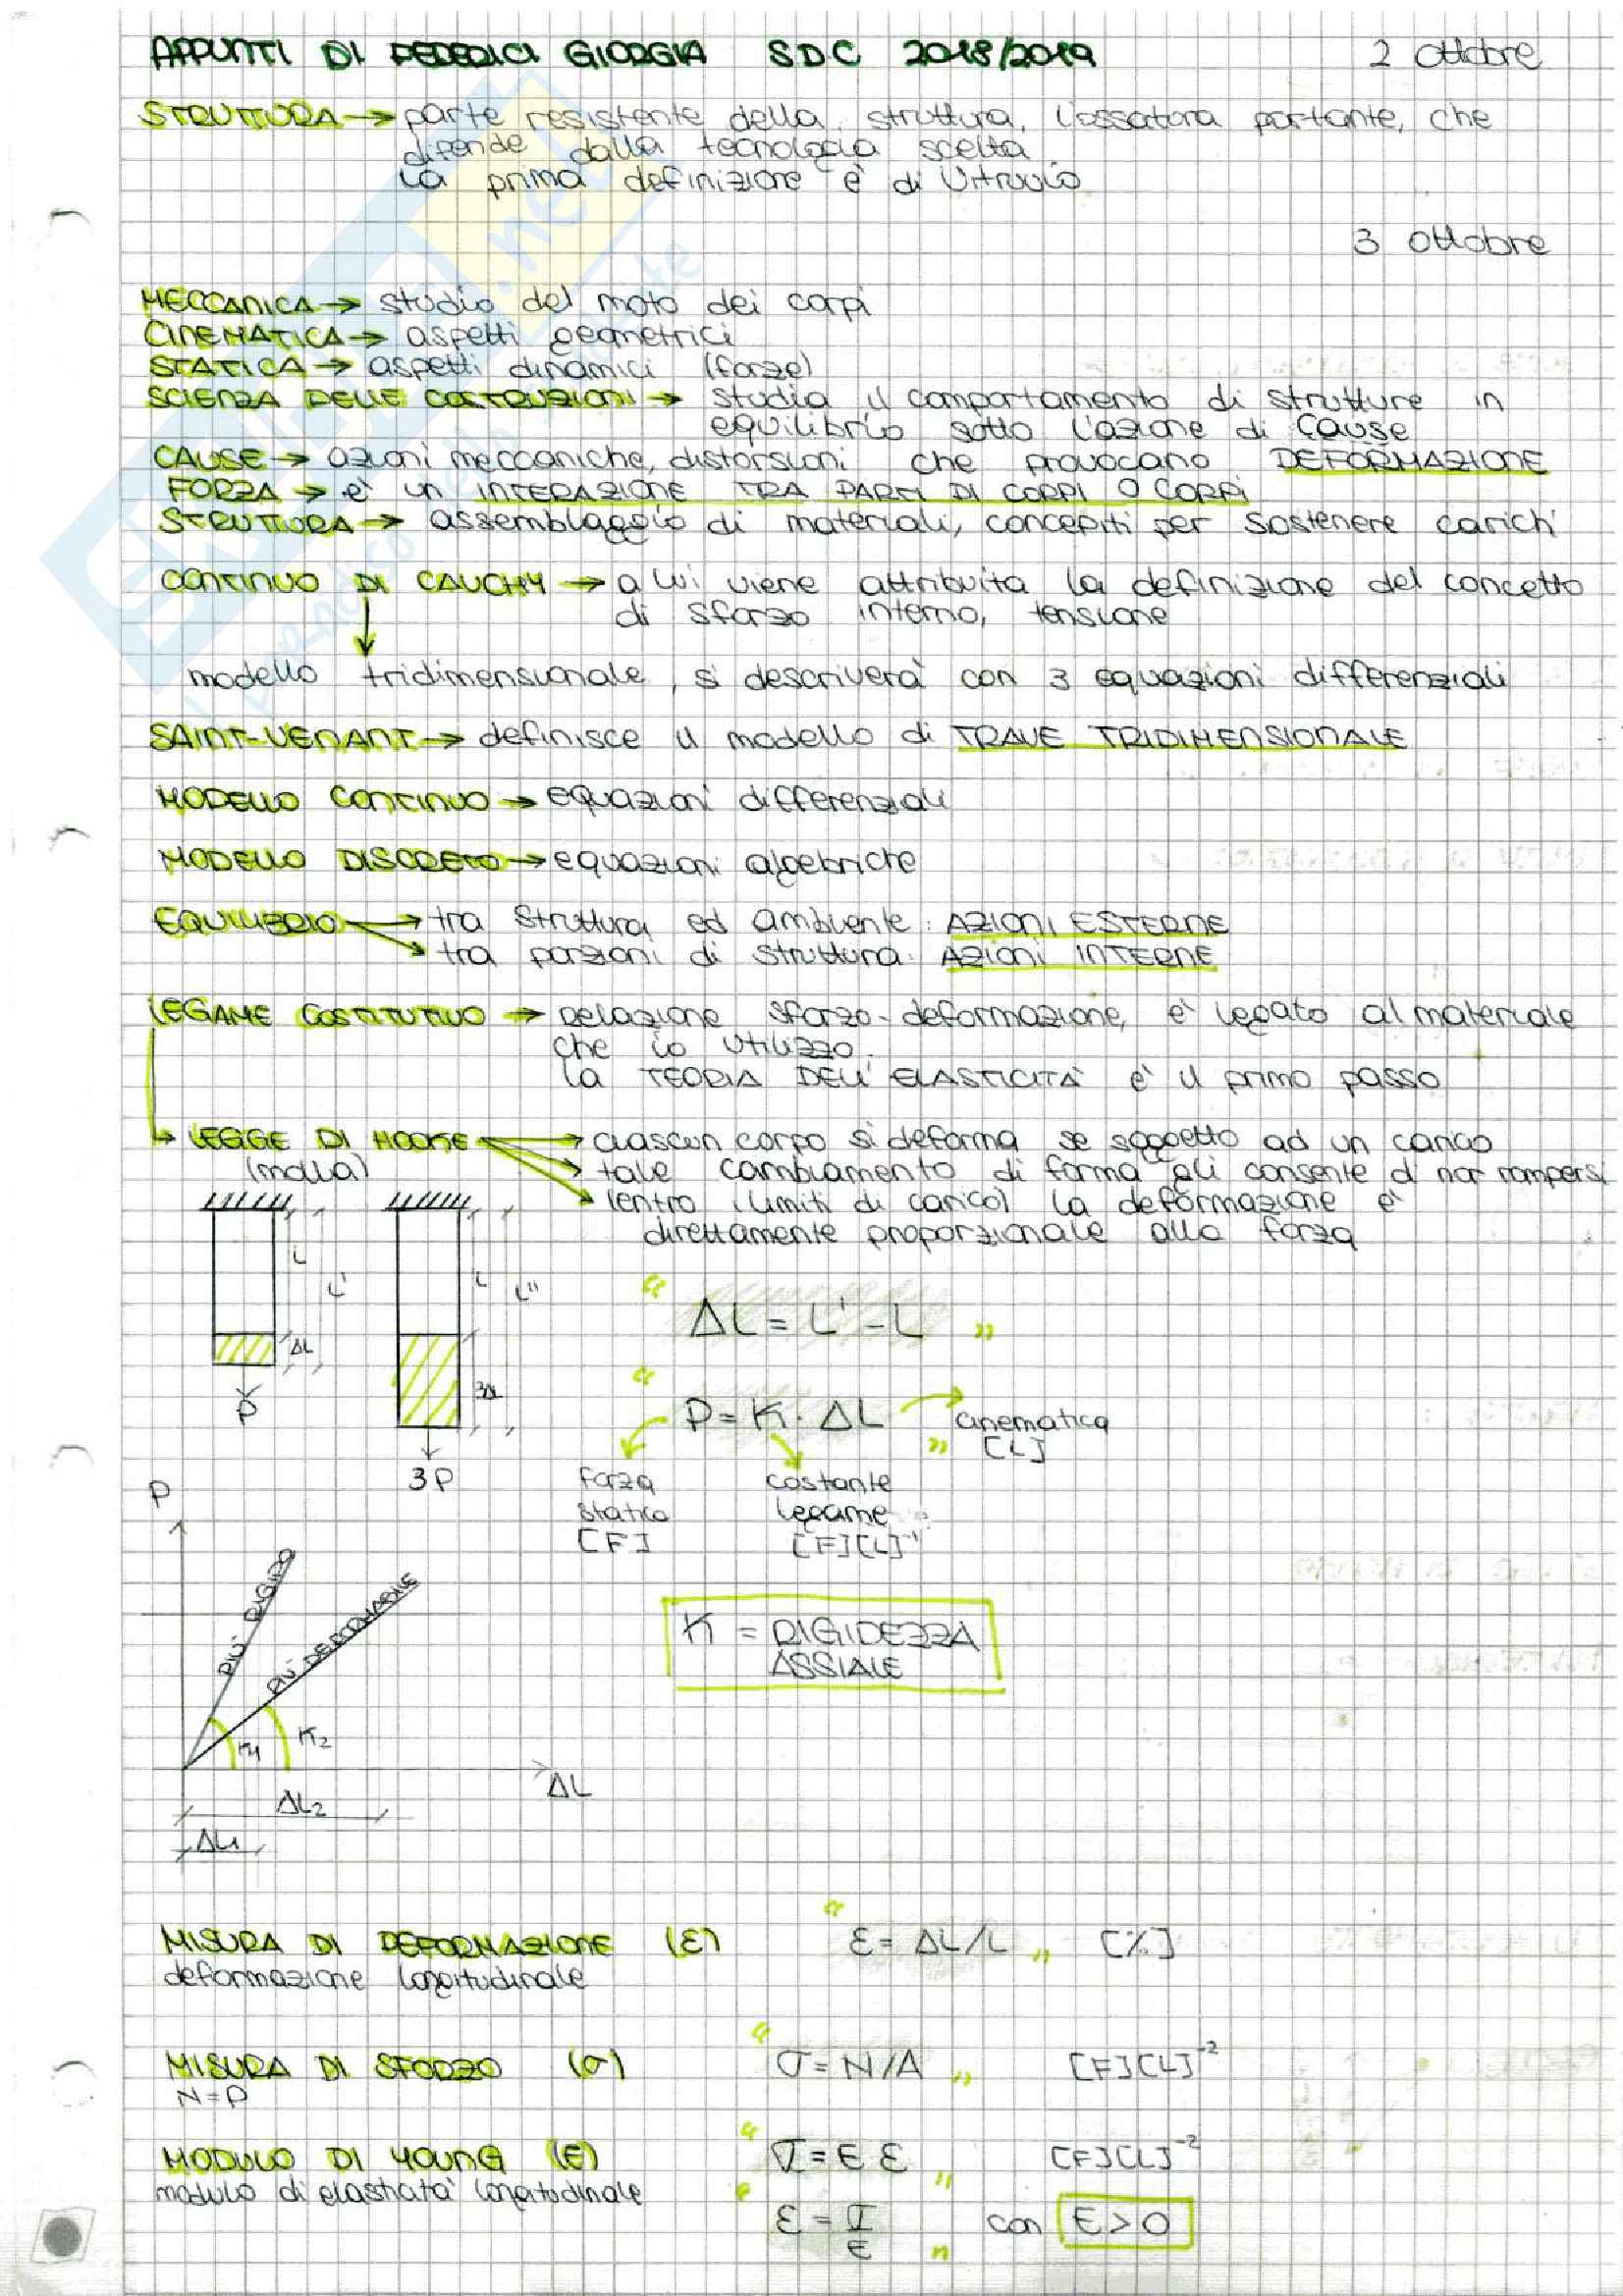 APPUNTI DI FEDERICI GIORGIA SDC 2018/2019 2 Ottobre
STRUTTURA → parte resistente della struttura, l'ossatura portante, che
dipende dalla tecnologia scelta.
La prima definizione è di Vitruvio
3 Ottobre
MECCANICA → studio del moto dei corpi
CINEMATICA → aspetti geometrici
STATICA → aspetti dinamici (forze)
SCIENZA DELLE COSTRUZIONI → studia il comportamento di strutture in
equilibrio sotto l'azione di cause
CAUSE → azioni meccaniche, distorsioni che provocano DEFORMAZIONE
FORZA → è un INTERAZIONE TRA PARTI DI CORPI O CORPI
STRUTTURA → assemblaggio di materiali, concepiti per sostenere carichi
CONTINUO DI CAUCHY → a lui viene attribuita la definizione del concetto
di sforzo interno, tensione
modello tridimensionale, si descriverà con 3 equazioni differenziali
SAINT-VENANT → definisce il modello di TRAVE TRIDIMENSIONALE
MODELLO CONTINUO → equazioni differenziali
MODELLO DISCRETO → equazioni algebriche
EQUILIBRIO → tra struttura ed ambiente: AZIONI ESTERNE
→ tra porzioni di struttura: AZIONI INTERNE
LEGAME COSTITUTIVO → relazione sforzo-deformazione, è legato al materiale
che io utilizzo.
la TEORIA DELL'ELASTICITÀ è il primo passo
→ LEGGE DI HOOKE → ciascun corpo si deforma se soggetto ad un carico
(molla) → tale cambiamento di forma gli consente di non rompersi
→ (entro i limiti di carico) la deformazione è
direttamente proporzionale alla forza
L L' L L''
ΔL 3ΔL
P 3P
" ΔL = L' - L "
" P = K · ΔL "
cinematica
[L]
forza
statica
[F]
costante
legame
[F][L]⁻¹
K = RIGIDEZZA
ASSIALE
P
PIÙ RIGIDO
PIÙ DEFORMABILE
K1 K2
ΔL
ΔL2
ΔL1
MISURA DI DEFORMAZIONE (ε) " ε = ΔL/L " [%]
deformazione longitudinale
MISURA DI SFORZO (σ) " σ = N/A " [F][L]⁻²
N=P
MODULO DI YOUNG (E) " σ = E ε " [F][L]⁻²
modulo di elasticità longitudinale
" ε = σ/E " con E > 0